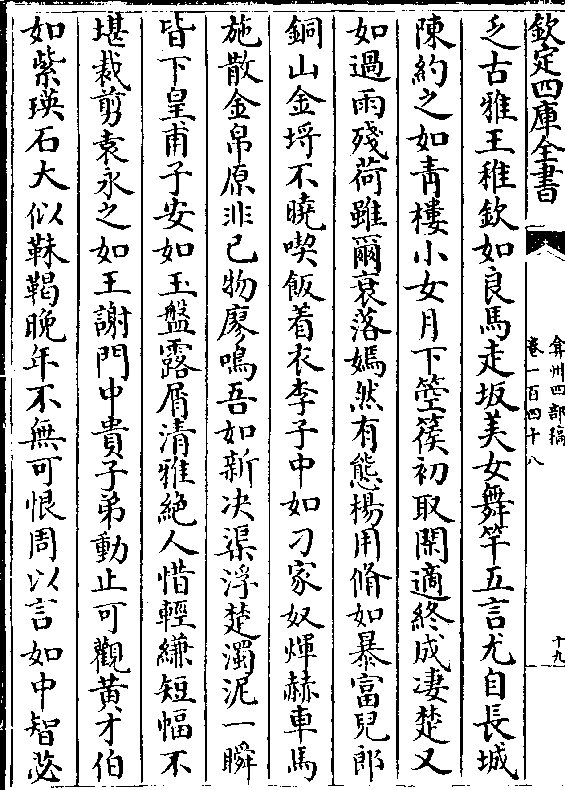 欽定四庫全書
弇州四部稿
卷一百四十八
十九
乏古雅王稚欽如良馬走坂美女舞竿五言尤自長城
陳約之如青樓小女月下箜篌初取閑適終成凄楚又
如過雨殘荷雖爾衰落嫣然有態楊用脩如暴富兒郎
銅山金埒不曉喫飯着衣李子中如刁家奴煇赫車馬
施散金帛原非已物廖鳴吾如新决渠浮楚濁泥一瞬
皆下皇甫子安如玉盤露屑清雅絶人惜輕縑短幅不
堪裁剪袁永之如王謝門中貴子弟動止可觀黄才伯
如紫瑛石大似靺鞨晚年不無可恨周以言如中智苾